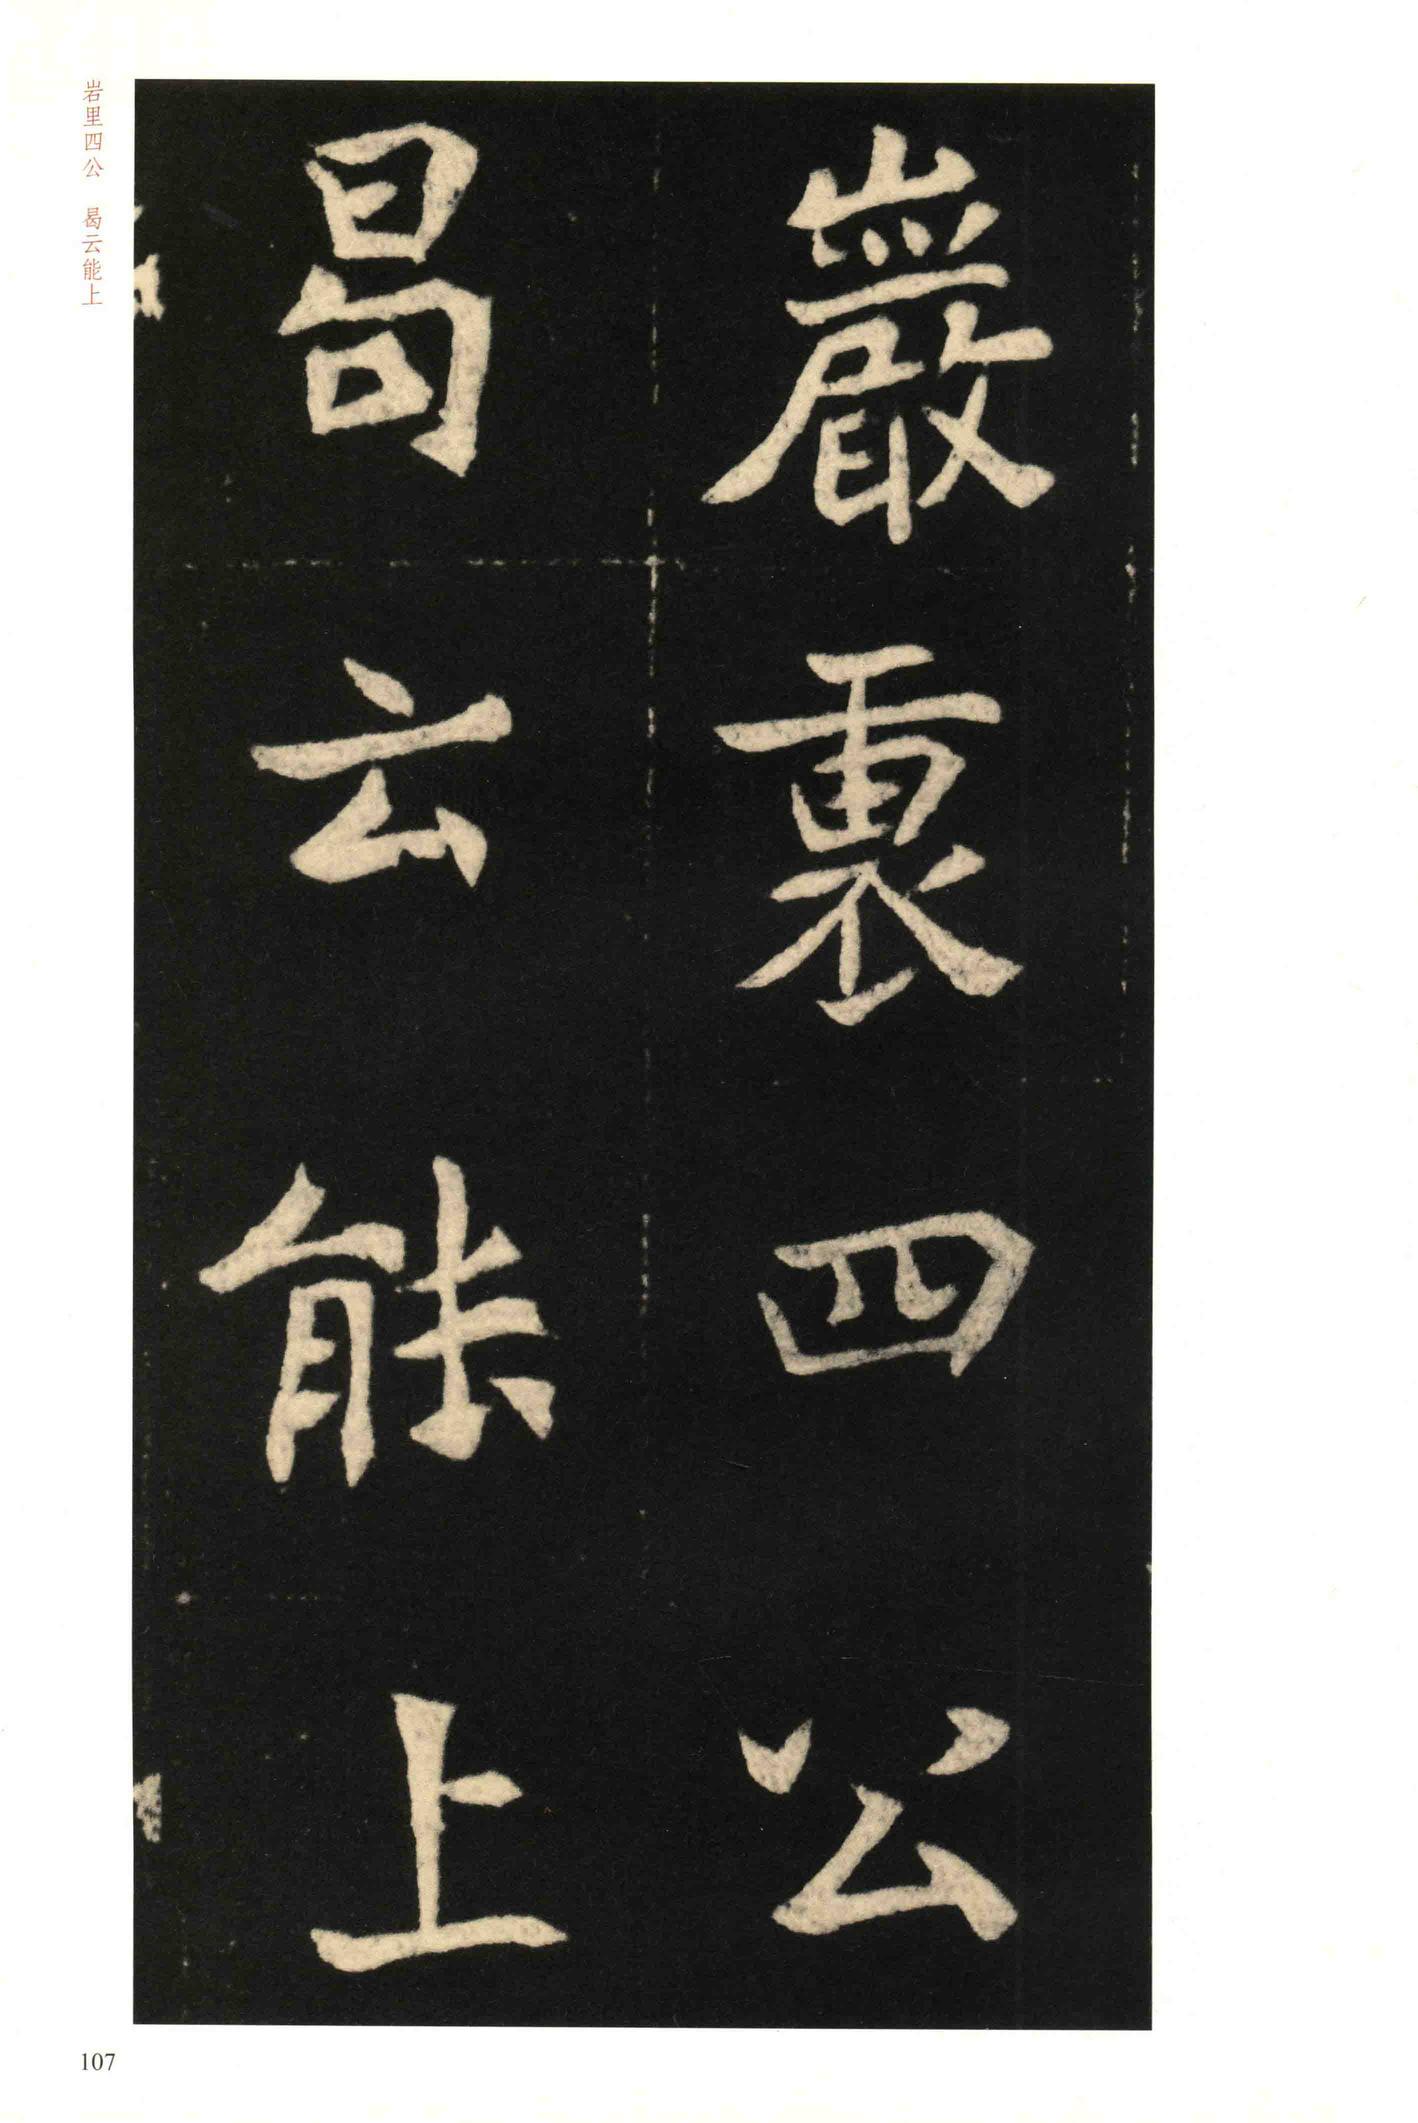 巖裏四公
曷云能上
岩里四公 曷云能上
107